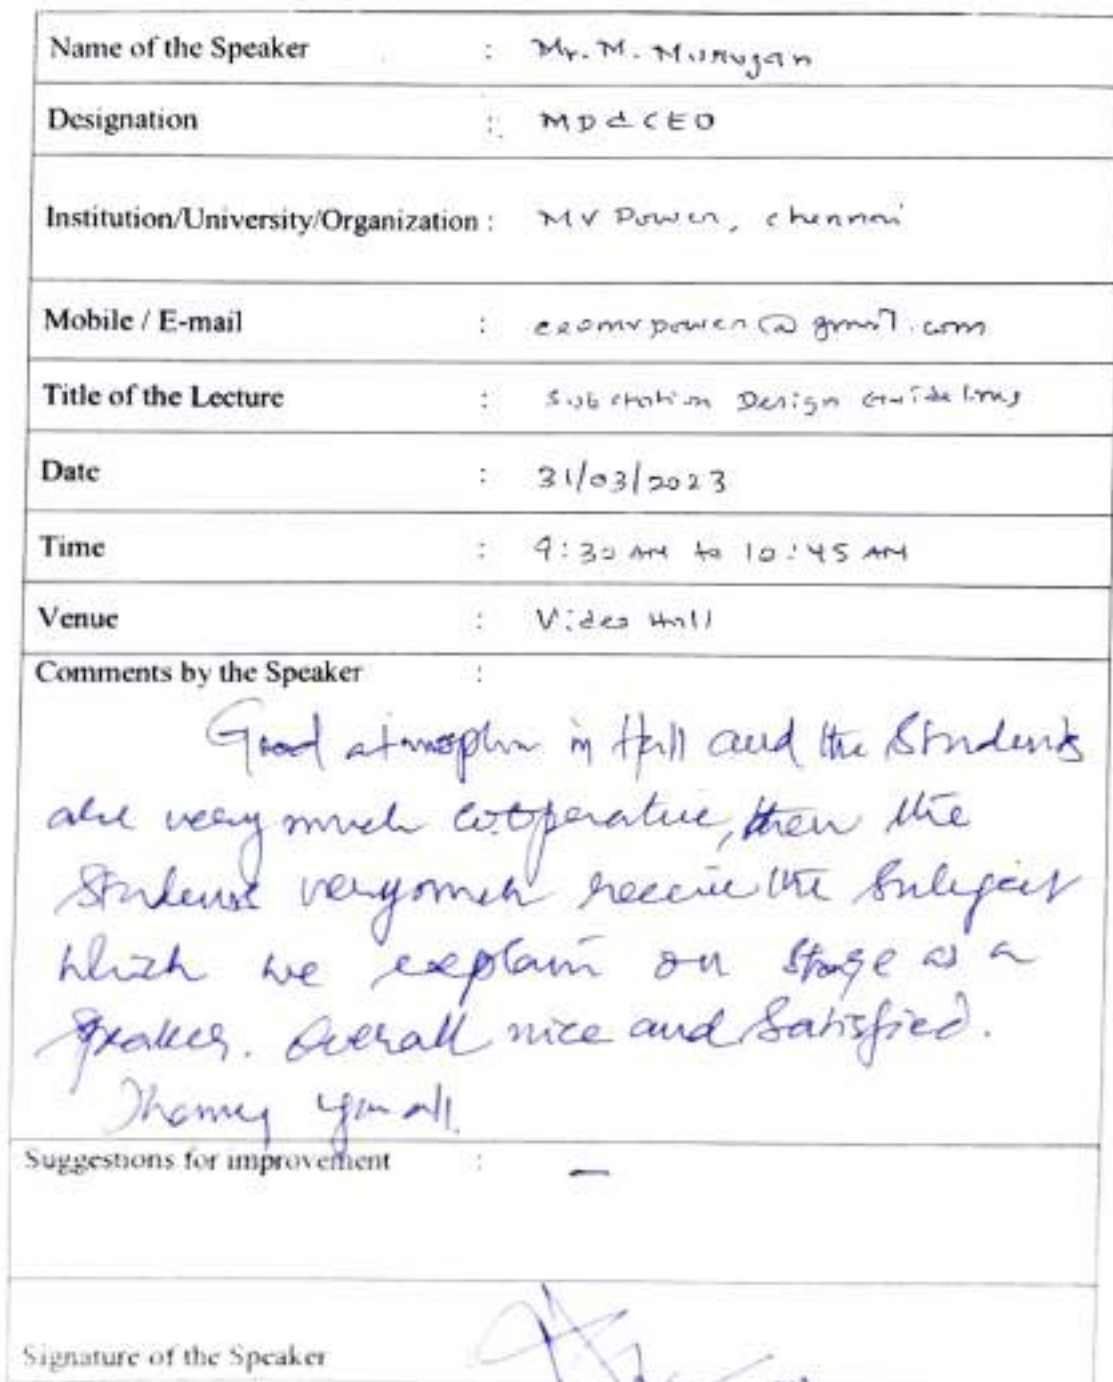 Name of the Speaker : Mr. M. Murugan
Designation : MD & CEO
Institution/University/Organization : MV Power, Chennai
Mobile / E-mail : ceomvpower@gmail.com
Title of the Lecture : Substation Design Guidelines
Date : 31/03/2023
Time : 9:30 AM to 10:45 AM
Venue : Video Hall
Comments by the Speaker :
Good atmosphere in Hall and the Students
are very much cooperative, then the
Students very much receive the Subject
which we explain on Stage as a
Speaker. Overall nice and Satisfied.
all.
Suggestions for improvement : —
Signature of the Speaker